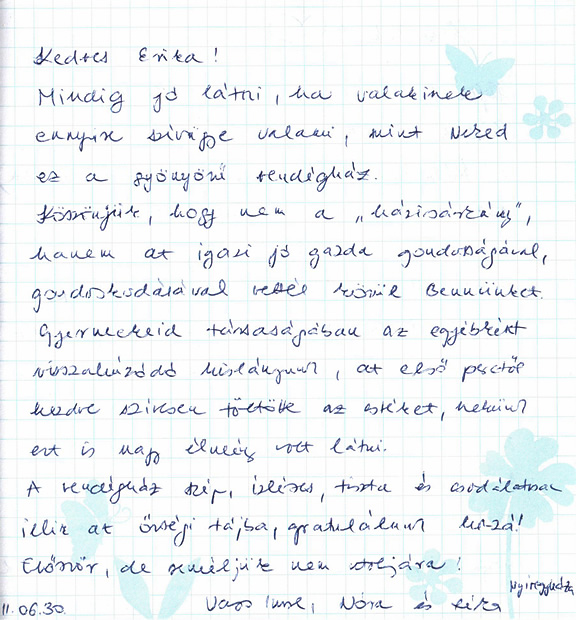 Kedves Erika!
Mindig jó látni, ha valakinek
ennyire szívügye valami, mint Neked
ez a gyönyörű vendégház.
Köszönjük, hogy nem a „házisárkány”,
hanem az igazi jó gazda gondosságával,
gondoskodásával vettél körül Bennünket.
Gyermekeid társaságában az egyébként
visszahúzódó kislányunk, az első perctől
kezdve szívesen töltötte az estéket, nekünk
ezt is nagy élmény volt látni.
A vendégház szép, ízléses, tiszta és csodálatosan
illik az őrségi tájba, gratulálunk hozzá!
Először, de reméljük nem utoljára!
Nyíregyháza
11.06.30. Vass Imre, Nóra és Réka